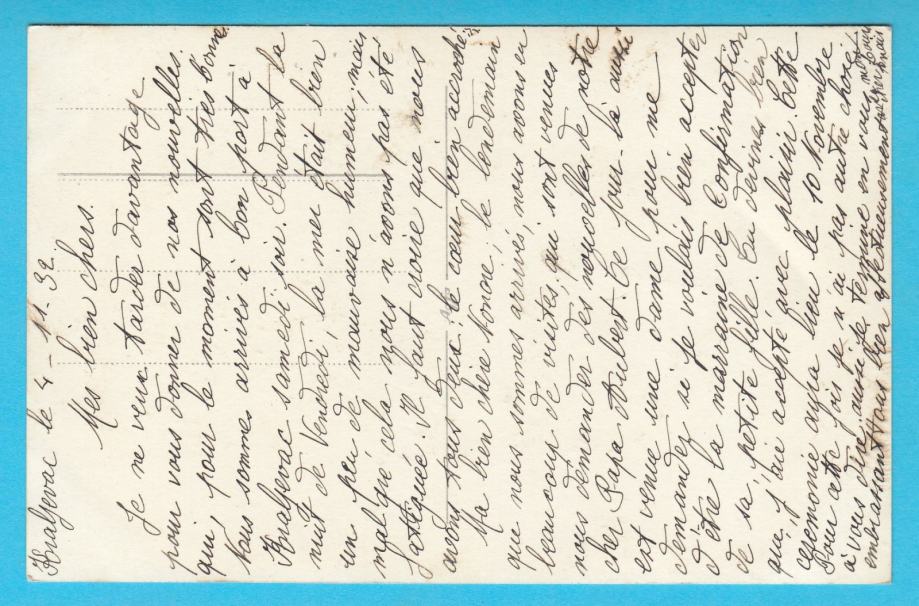 Kraljevac le 4-11.32.
Mes bien chers.
Je ne veux tarder davantage
pour vous donner de nos nouvelles
qui pour le moment sont très bonnes.
Nous sommes arrivés à bon port à
Kraljevac samedi soir. Pendant la
nuit de Vendredi, la mer était bien
un peu de mauvaise humeur, mais
malgré cela nous n'avons pas été
fatiguée. Il faut croire que nous
avons tous deux le cœur bien accroché.
Ma bien chère Nonore, le lendemain
que nous sommes arrivés, nous avons eu
beaucoup de visites, qui sont venues
nous demander des nouvelles de notre
cher Papa Aubert. Ce jour-là aussi
est venue une dame pour me
demander si je voulais bien accepter
d'être la marraine de Confirmation
de sa petite fille. Tu devines bien
que j'ai accepté avec plaisir. Cette
ceremonie aura lieu le 10 Novembre
Pour cette fois je n'ai pas autre chose
à vous dire aussi je termine en vous
embrassant tous bien affectueusement